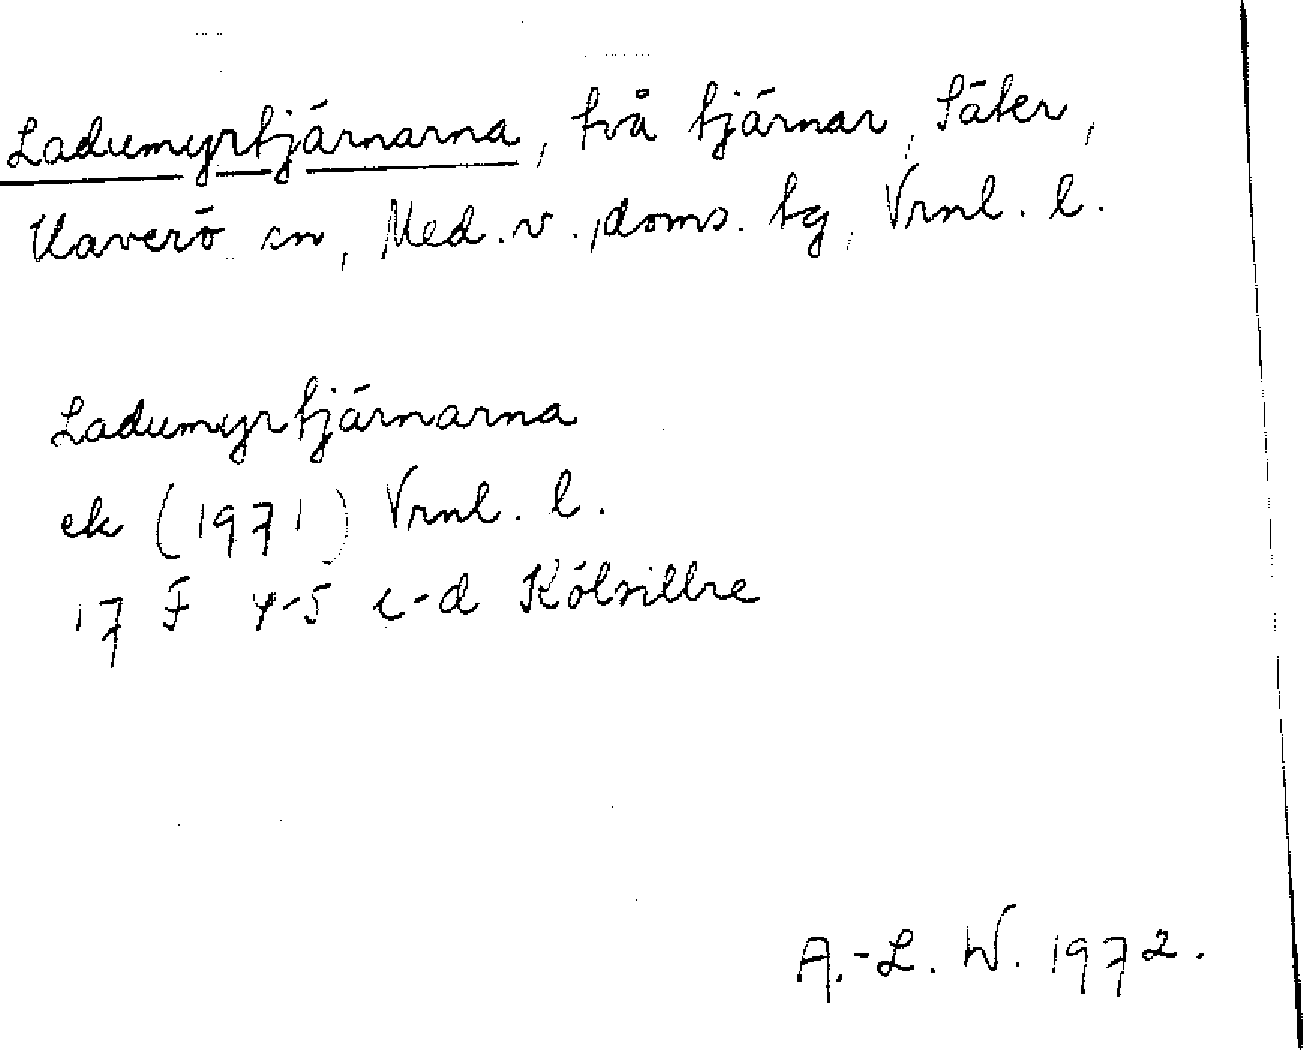 Ladumyrtjärnarna, två tjärnar, Säter,
Haverö sn, Med. v., doms. tg, Vrnl. l.
Ladumyrtjärnarna
ek (1971) Vrnl. l.
17 F 4-5 c-d Kölsillre
A.-L. W. 1972.